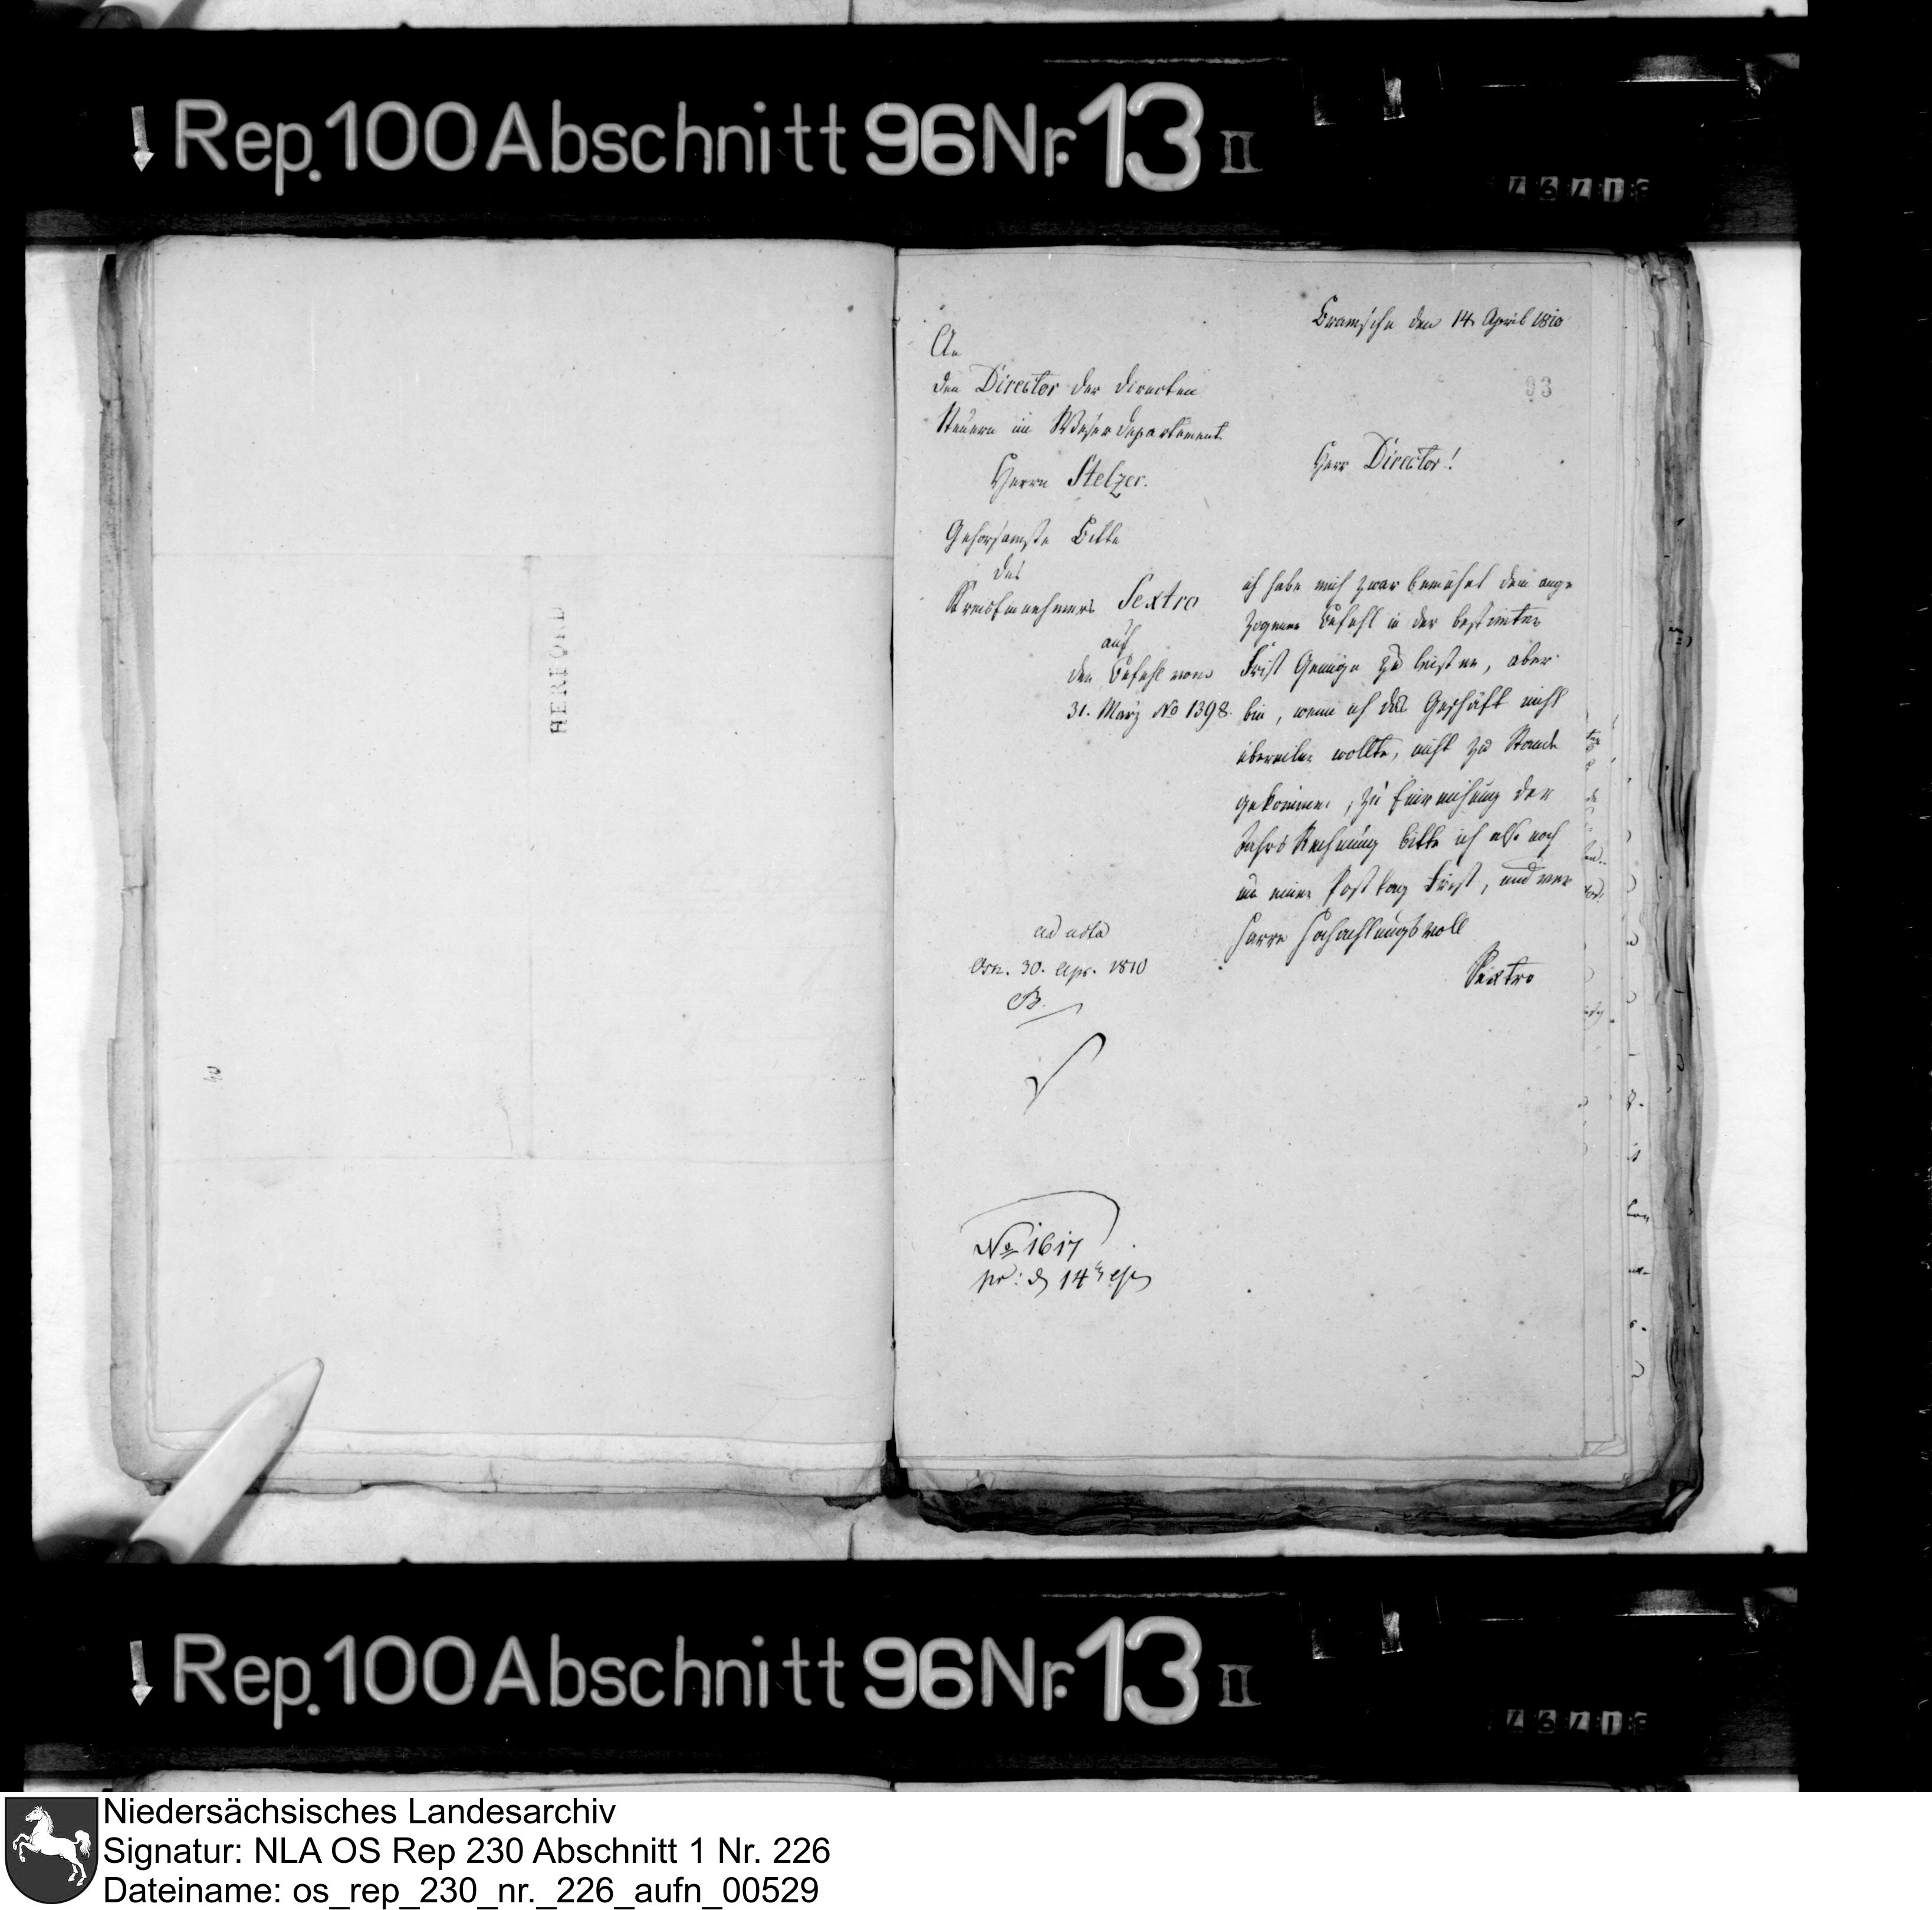 Rep. 100 Abschnitt 96 Nr. 13 II
HERFORD
Bramsche den 14 April 1810
93
An
den Director der directen
Steuern im Weserdepartement
Herrn Stelzer.
Herr Director!
Gehorsamste Bitte
des
Kreiseinnehmers Sextro
auf
den Befehl vom
31. März No 1398.
ich habe mich zwar bemühet dem ange
zogenen Befehl in der bestimten
Frist Genüge zu leisten, aber
bin, wenn ich das Geschäft nicht
übereilen wollte, nicht zu Stande
gekommen, zu Einreichung der
Jahrs Rechnung bitte ich also noch
um einen Posttag Frist, und ver
harre hochachtungsvoll
Sextro
ad acta
Osn. 30. Apr. 1810
B.
No 1617
pr: d 14
Rep. 100 Abschnitt 96 Nr. 13 II
Niedersächsisches Landesarchiv
Signatur: NLA OS Rep 230 Abschnitt 1 Nr. 226
Dateiname: os_rep_230_nr._226_aufn_00529